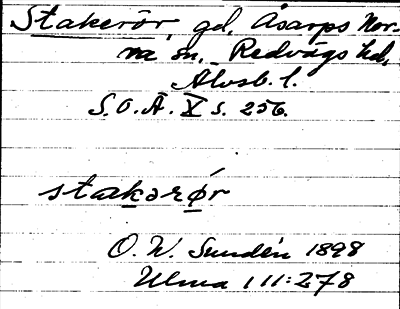 Stakerör, gd, Åsarps Nor-
ra sn, Redvägs hd,
Älvsb. l.
S.O.Ä. X s. 256.
stakərǿr
O. W. Sundén 1898
Ulma 111:278